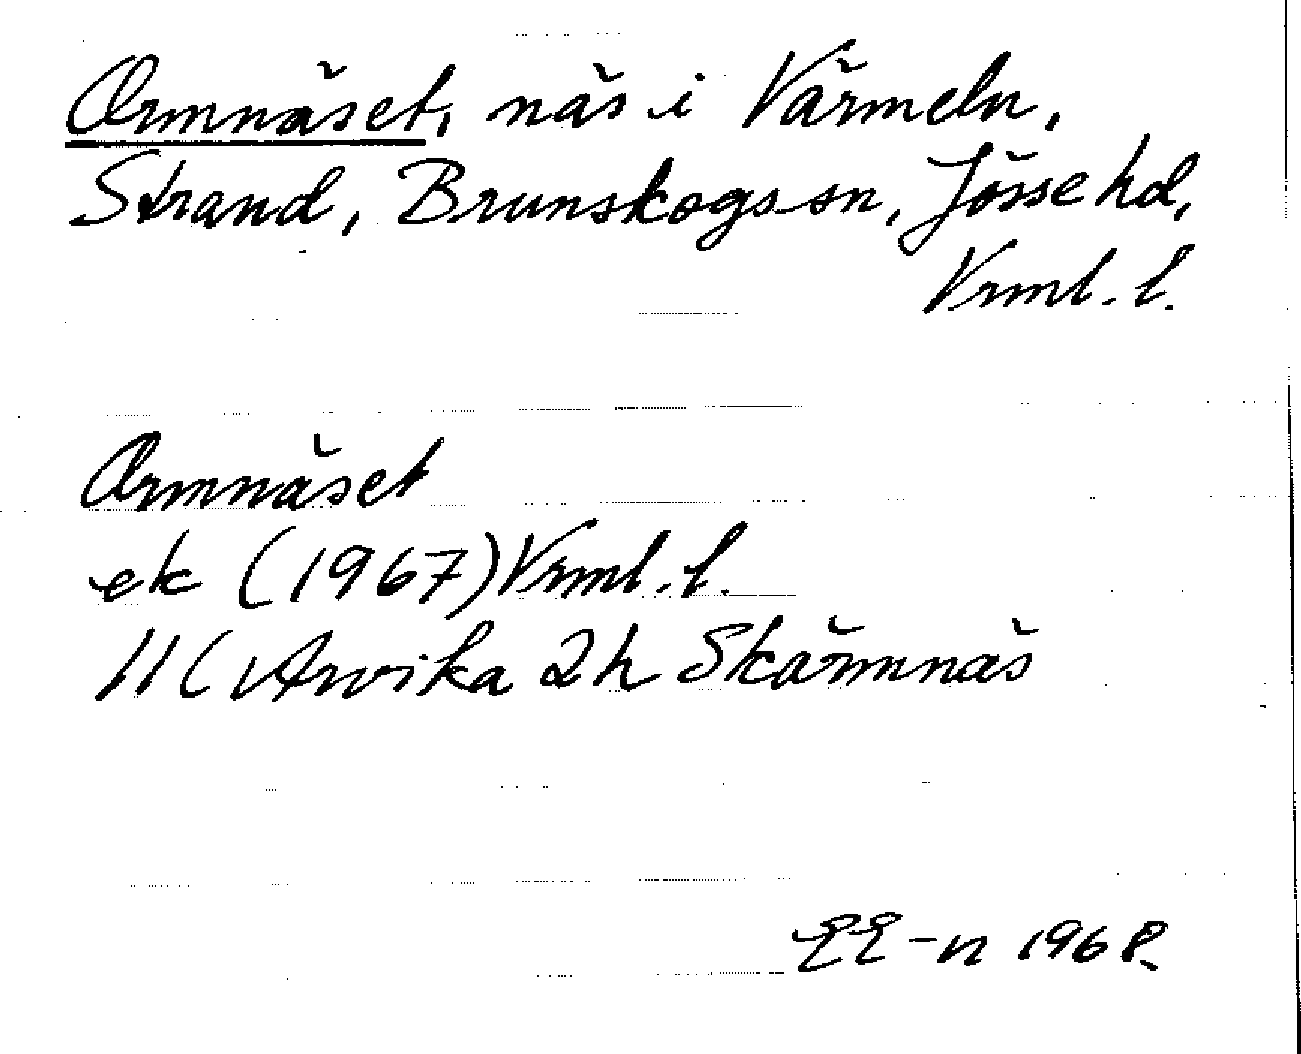 Ormnäset, näs i Värmeln,
Strand, Brunskogs sn, Jösse hd,
Vrml. l.
Ormnäset
ek (1967) Vrml. l.
11C Arvika 2h Skärmnäs
EE-n 1968